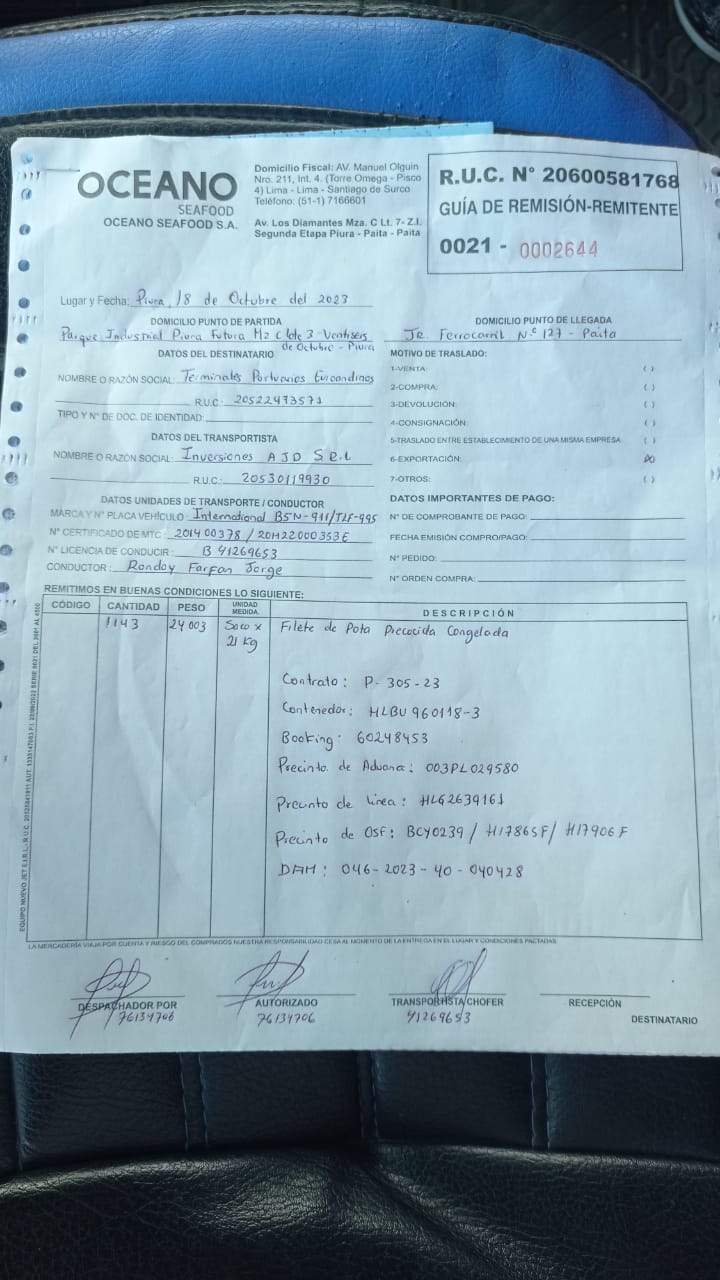 OCEANO
SEAFOOD
OCEANO SEAFOOD S.A.
Domicilio Fiscal: AV. Manuel Olguin
Nro. 211, Int. 4. (Torre Omega - Pisco
4) Lima - Lima - Santiago de Surco
Teléfono: (51-1) 7166601
Av. Los Diamantes Mza. C Lt. 7- Z.I.
Segunda Etapa Piura - Paita - Paita
R.U.C. N° 20600581768
GUÍA DE REMISIÓN-REMITENTE
0021 - 0002644
Lugar y Fecha: Piura, 18 de Octubre del 2023
DOMICILIO PUNTO DE PARTIDA
Parque Industrial Piura Futura Mz C lote 3 - Veintiseis
de Octubre - Piura
DOMICILIO PUNTO DE LLEGADA
JR. Ferrocarril N.º 127 - Paita
DATOS DEL DESTINATARIO
NOMBRE O RAZÓN SOCIAL: Terminales Portuarios Euroandinos
R.U.C: 20522473571
TIPO Y N° DE DOC. DE IDENTIDAD:
DATOS DEL TRANSPORTISTA
NOMBRE O RAZÓN SOCIAL: Inversiones AJD S.R.L
R.U.C.: 20530119930
MOTIVO DE TRASLADO:
1-VENTA: ( )
2-COMPRA: ( )
3-DEVOLUCIÓN: ( )
4-CONSIGNACIÓN: ( )
5-TRASLADO ENTRE ESTABLECIMIENTO DE UNA MISMA EMPRESA ( )
6-EXPORTACIÓN: (X)
7-OTROS: ( )
DATOS UNIDADES DE TRANSPORTE / CONDUCTOR
MARCA Y N° PLACA VEHÍCULO International B5N-911/T2F-995
N° CERTIFICADO DE MTC: 201400378 / 20M22000353E
N° LICENCIA DE CONDUCIR: B 41269653
CONDUCTOR: Rondoy Farfan Jorge
DATOS IMPORTANTES DE PAGO:
N° DE COMPROBANTE DE PAGO:
FECHA EMISIÓN COMPRO/PAGO:
N° PEDIDO:
N° ORDEN COMPRA:
REMITIMOS EN BUENAS CONDICIONES LO SIGUIENTE:
CÓDIGO CANTIDAD PESO UNIDAD MEDIDA. DESCRIPCIÓN
1143 24003 Saco x 21 Kg Filete de Pota Precocida Congelada
Contrato: P-305-23
Contenedor: HLBU 960118-3
Booking: 60248453
Precinto de Aduana: 003PL029580
Precinto de línea: HLG2639161
Precinto de OSF: BCY0239 / H17865F / H17906F
DAM: 046-2023-40-040428
LA MERCADERÍA VIAJA POR CUENTA Y RIESGO DEL COMPRADOS NUESTRA RESPONSABILIDAD CESA AL MOMENTO DE LA ENTREGA EN EL LUGAR Y CONDICIONES PACTADAS.
DESPACHADOR POR
76134706
AUTORIZADO
76134706
TRANSPORTISTA/CHOFER
41269653
RECEPCIÓN
DESTINATARIO